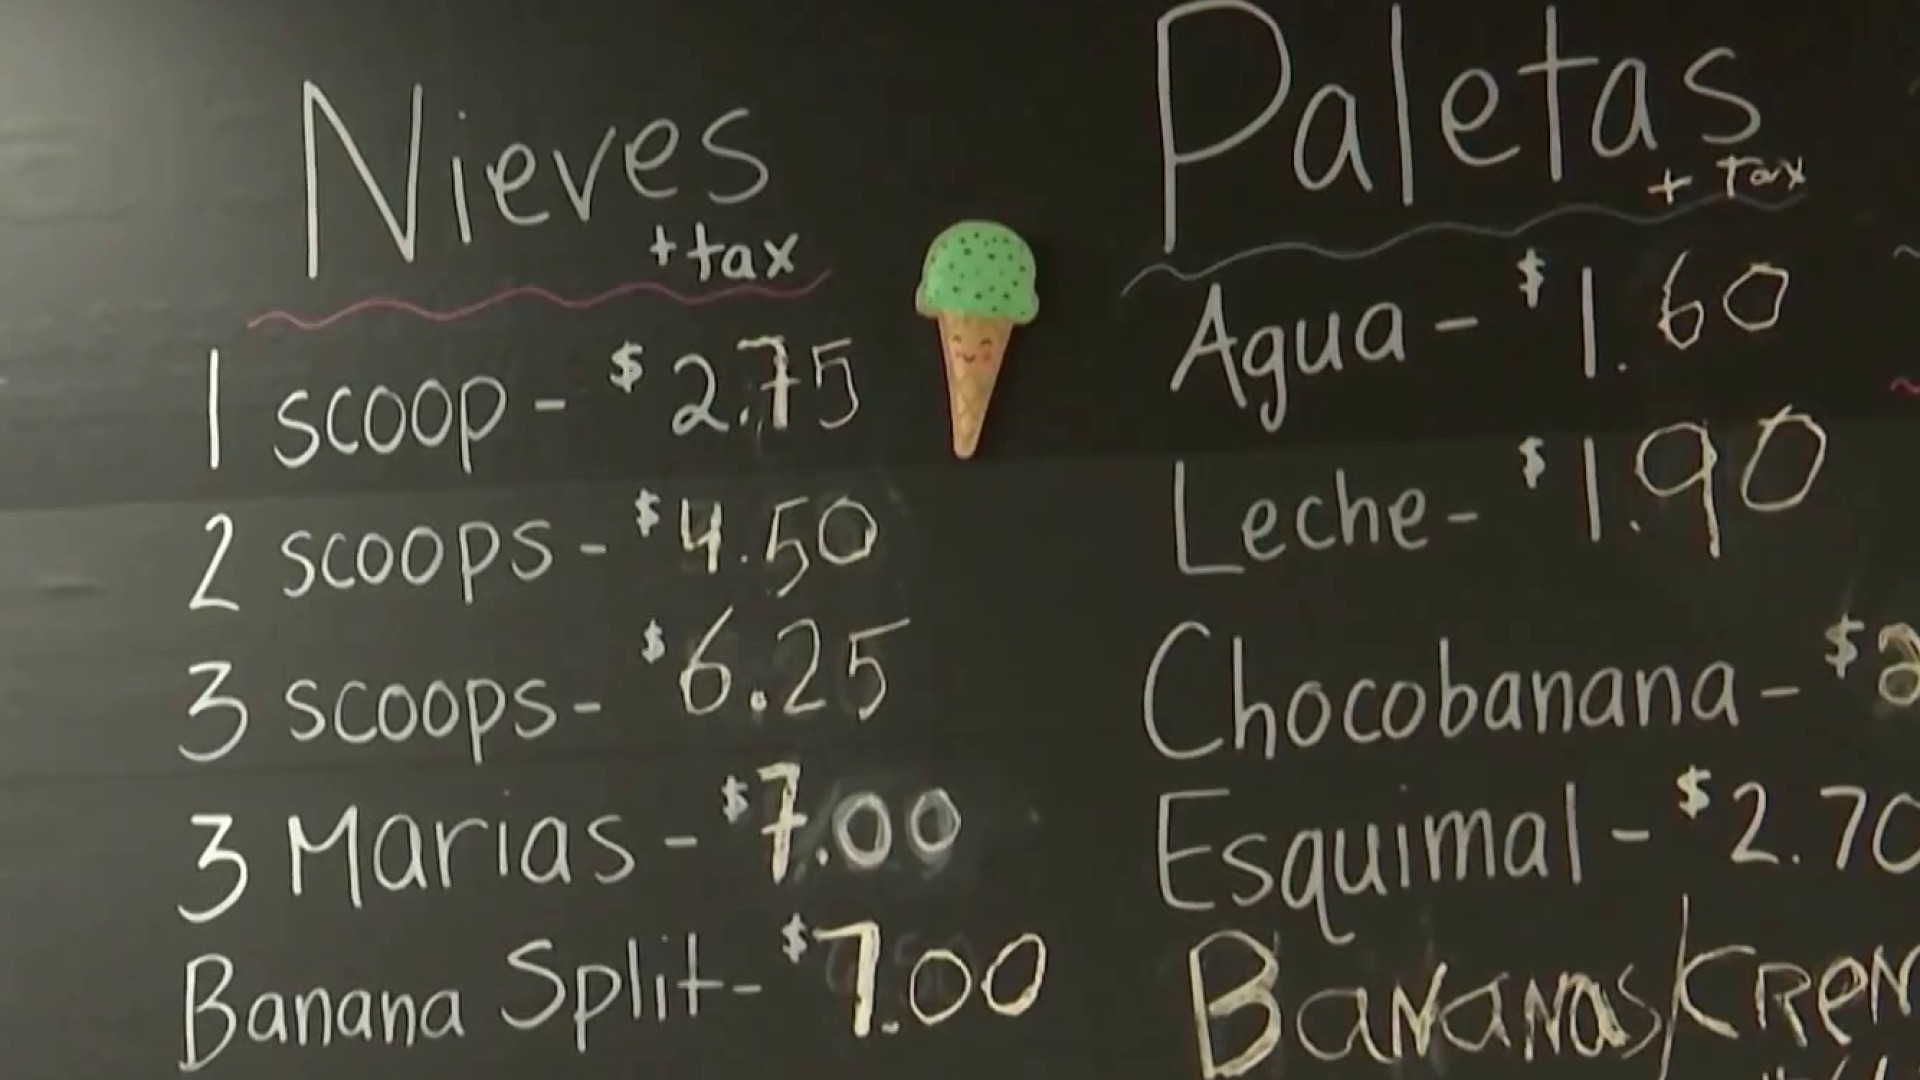 Nieves
+ tax
1 scoop - $2.75
2 scoops - $4.50
3 scoops - $6.25
3 Marias - $7.00
Banana Split - $7.00
Paletas
+ Tax
Agua - $1.60
Leche - $1.90
Chocobanana - $2
Esquimal - $2.70
Bananas/